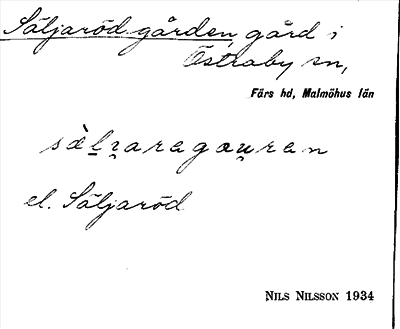 Säljaröd gården, gård i
Östraby sn,
Färs hd, Malmöhus län
sæ̀l̠ɿaragau̯ren
el. Säljaröd
NILS NILSSON 1934